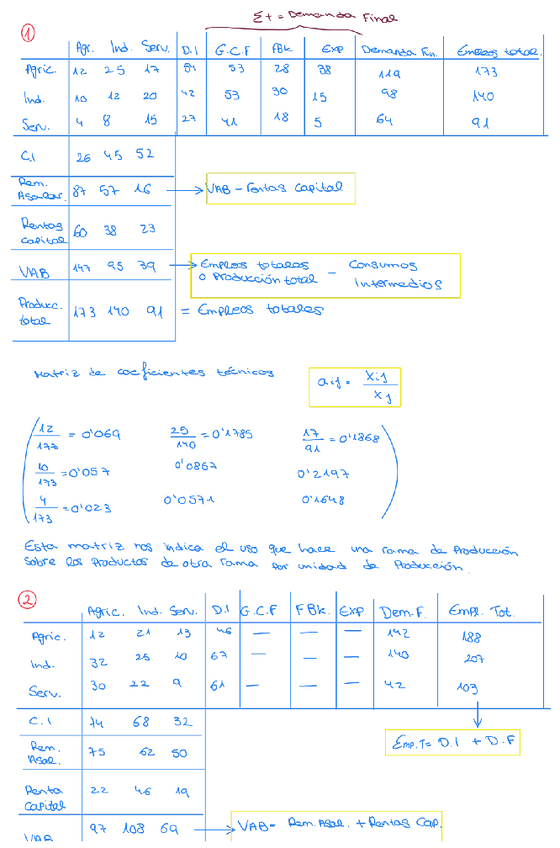 Σ+ = Demanda Final
1
Agr. Ind. Serv. D.I G.C.F FBk. Exp Demanda Fin. Empleos total.
Agric. 12 25 17 54 53 28 38 119 173
Ind. 10 12 20 42 53 30 15 98 140
Serv. 4 8 15 27 41 18 5 64 91
C.I 26 45 52
Rem. Asalar. 87 57 16 → VAB - Rentas Capital
Rentas Capital 60 38 23
VAB 147 95 39 → Empleos totales o Producción total - Consumos Intermedios
Producc. total 173 140 91 = Empleos totales
Matriz de coeficientes técnicos
aij = Xij / Xj
12/173 = 0'069 25/140 = 0'1785 17/91 = 0'1868
10/173 = 0'057 0'0867 0'2197
4/173 = 0'023 0'0571 0'1648
Esta matriz nos indica el uso que hace una rama de Producción
sobre los Productos de otra rama por unidad de Producción.
2
Agric. Ind. Serv. D.I G.C.F FBk. Exp Dem.F. Empl. Tot.
Agric. 12 21 13 46 — — — 142 188
Ind. 32 25 10 67 — — — 140 207
Serv. 30 22 9 61 — — — 42 103
C.I 74 68 32
Emp.T = D.I + D.F
Rem. Asal. 75 62 50
Renta Capital 22 46 19
VAB 97 108 69 → VAB = Rem.Asal. + Rentas Cap.